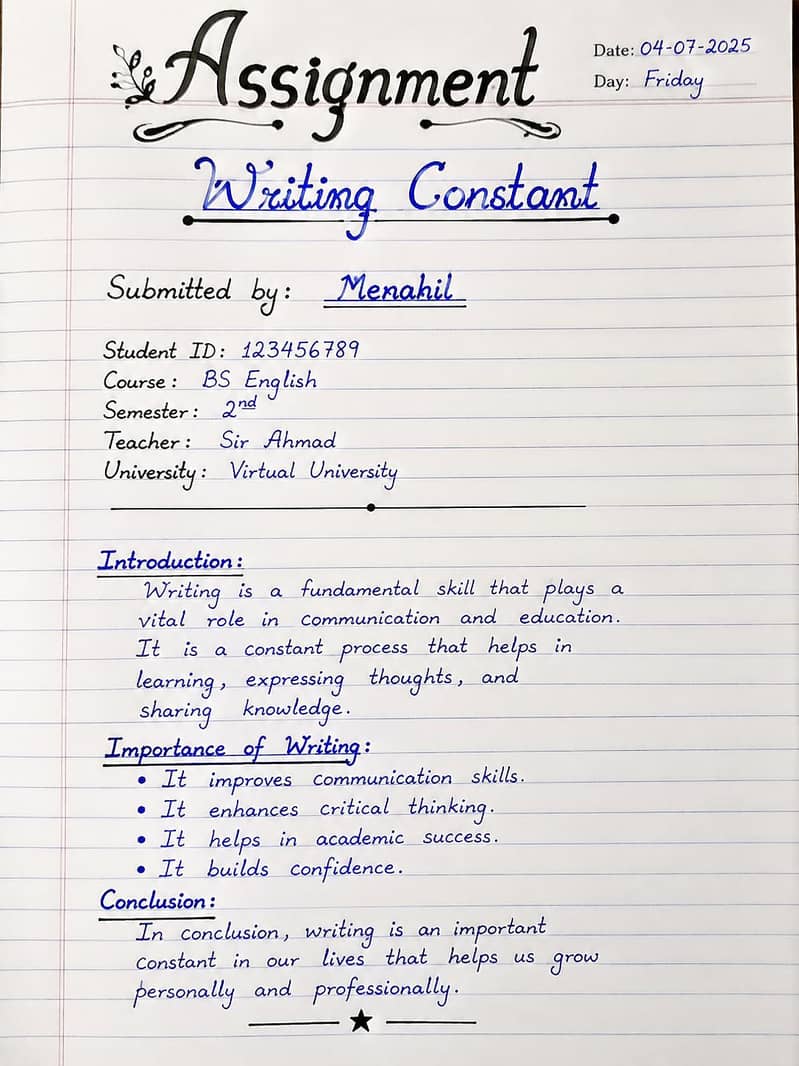 Assignment
Date: 04-07-2025
Day: Friday
Writing Constant
Submitted by: Menahil
Student ID: 123456789
Course: BS English
Semester: 2nd
Teacher: Sir Ahmad
University: Virtual University
Introduction:
Writing is a fundamental skill that plays a
vital role in communication and education.
It is a constant process that helps in
learning, expressing thoughts, and
sharing knowledge.
Importance of Writing:
• It improves communication skills.
• It enhances critical thinking.
• It helps in academic success.
• It builds confidence.
Conclusion:
In conclusion, writing is an important
constant in our lives that helps us grow
personally and professionally.